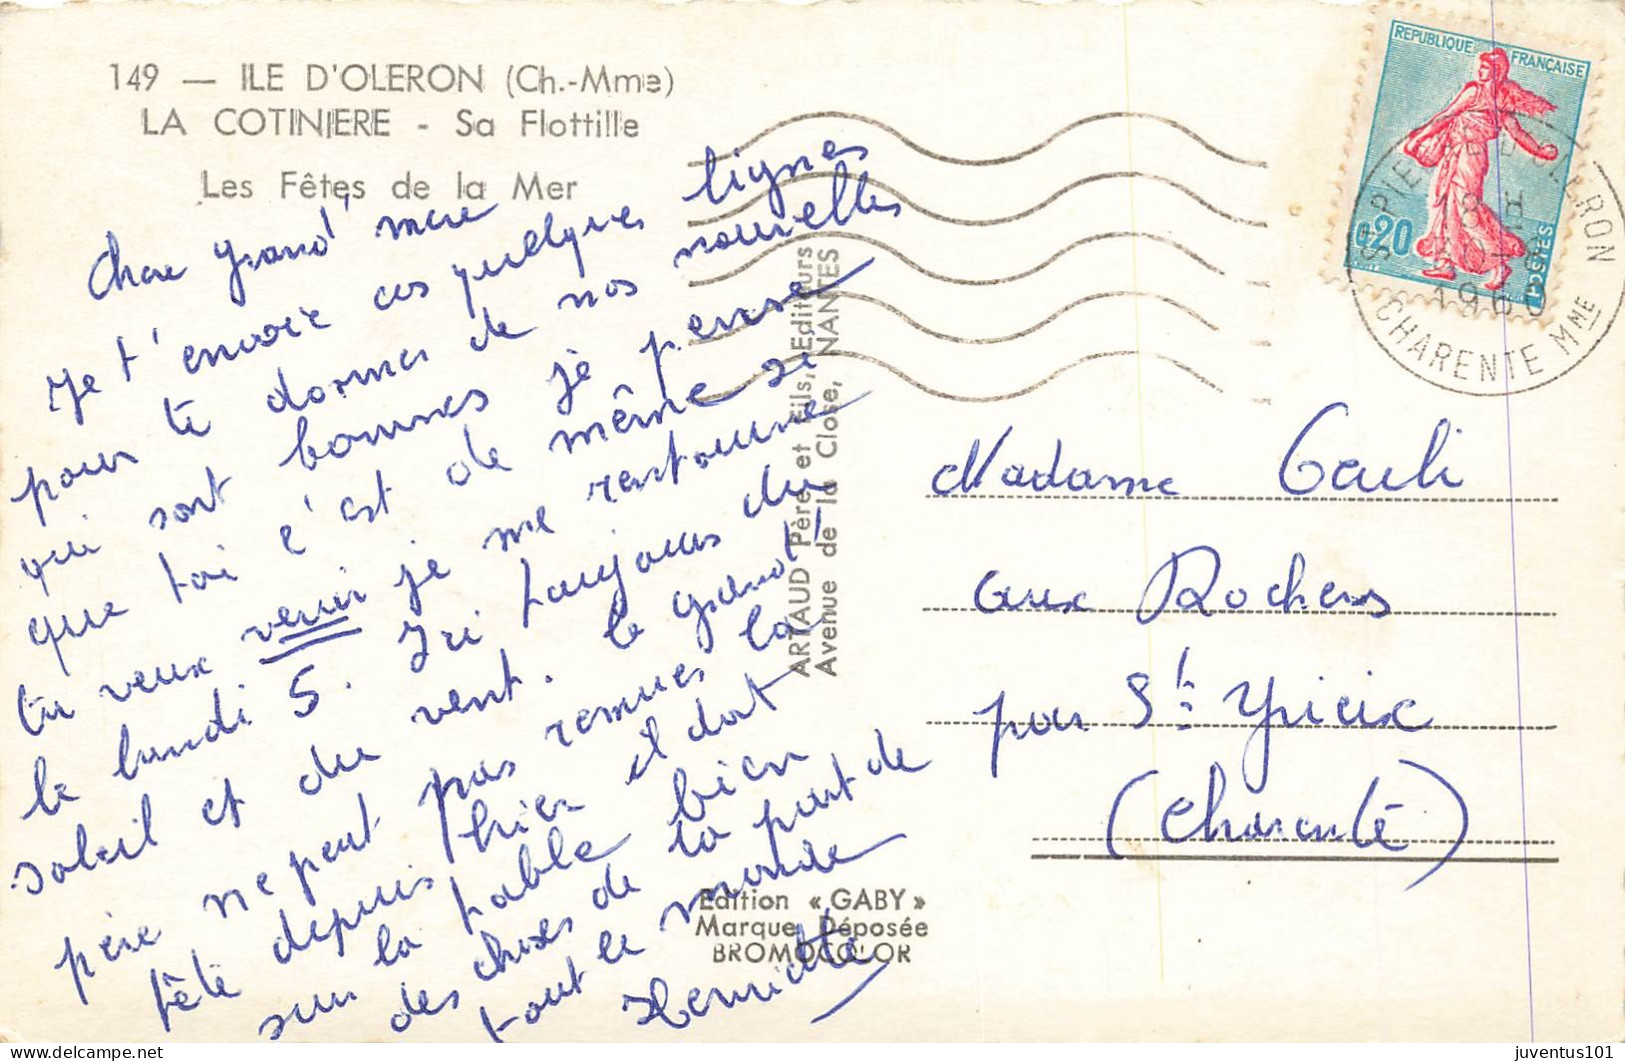 149 — ILE D'OLERON (Ch.-Mme)
LA COTINIERE - Sa Flottille
Les Fêtes de la Mer
Chere Grand' mere
Je t'envoie ces quelques lignes
pour te donner de nos nouvelles
qui sont bonnes je pense
que toi c'est de même si
tu veux venir je me restourne
le lundi 5. Ici toujours du
soleil et du vent. le grand'
père ne peut pas remues la
tête depuis hier il dort
sur la table bien
des choses de la part de
tout le monde
Henriette
ARTAUD Père et Fils, Editeurs
Avenue de la Close, NANTES
Edition « GABY »
Marque Déposée
BROMOCOLOR
REPUBLIQUE FRANÇAISE
0,20
POSTES
ST PIERRE D'OLERON
18 H
30
1960
CHARENTE MME
Madame Gauli
aux Rochers
par St Yrieix
(Charente)
juventus101